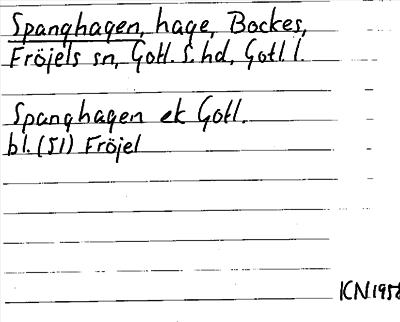 Spanghagen, hage, Bockes,
Fröjels sn, Gotl. S. hd, Gotl. l.
Spanghagen ek Gotl.
bl. (51) Fröjel
KN 1958